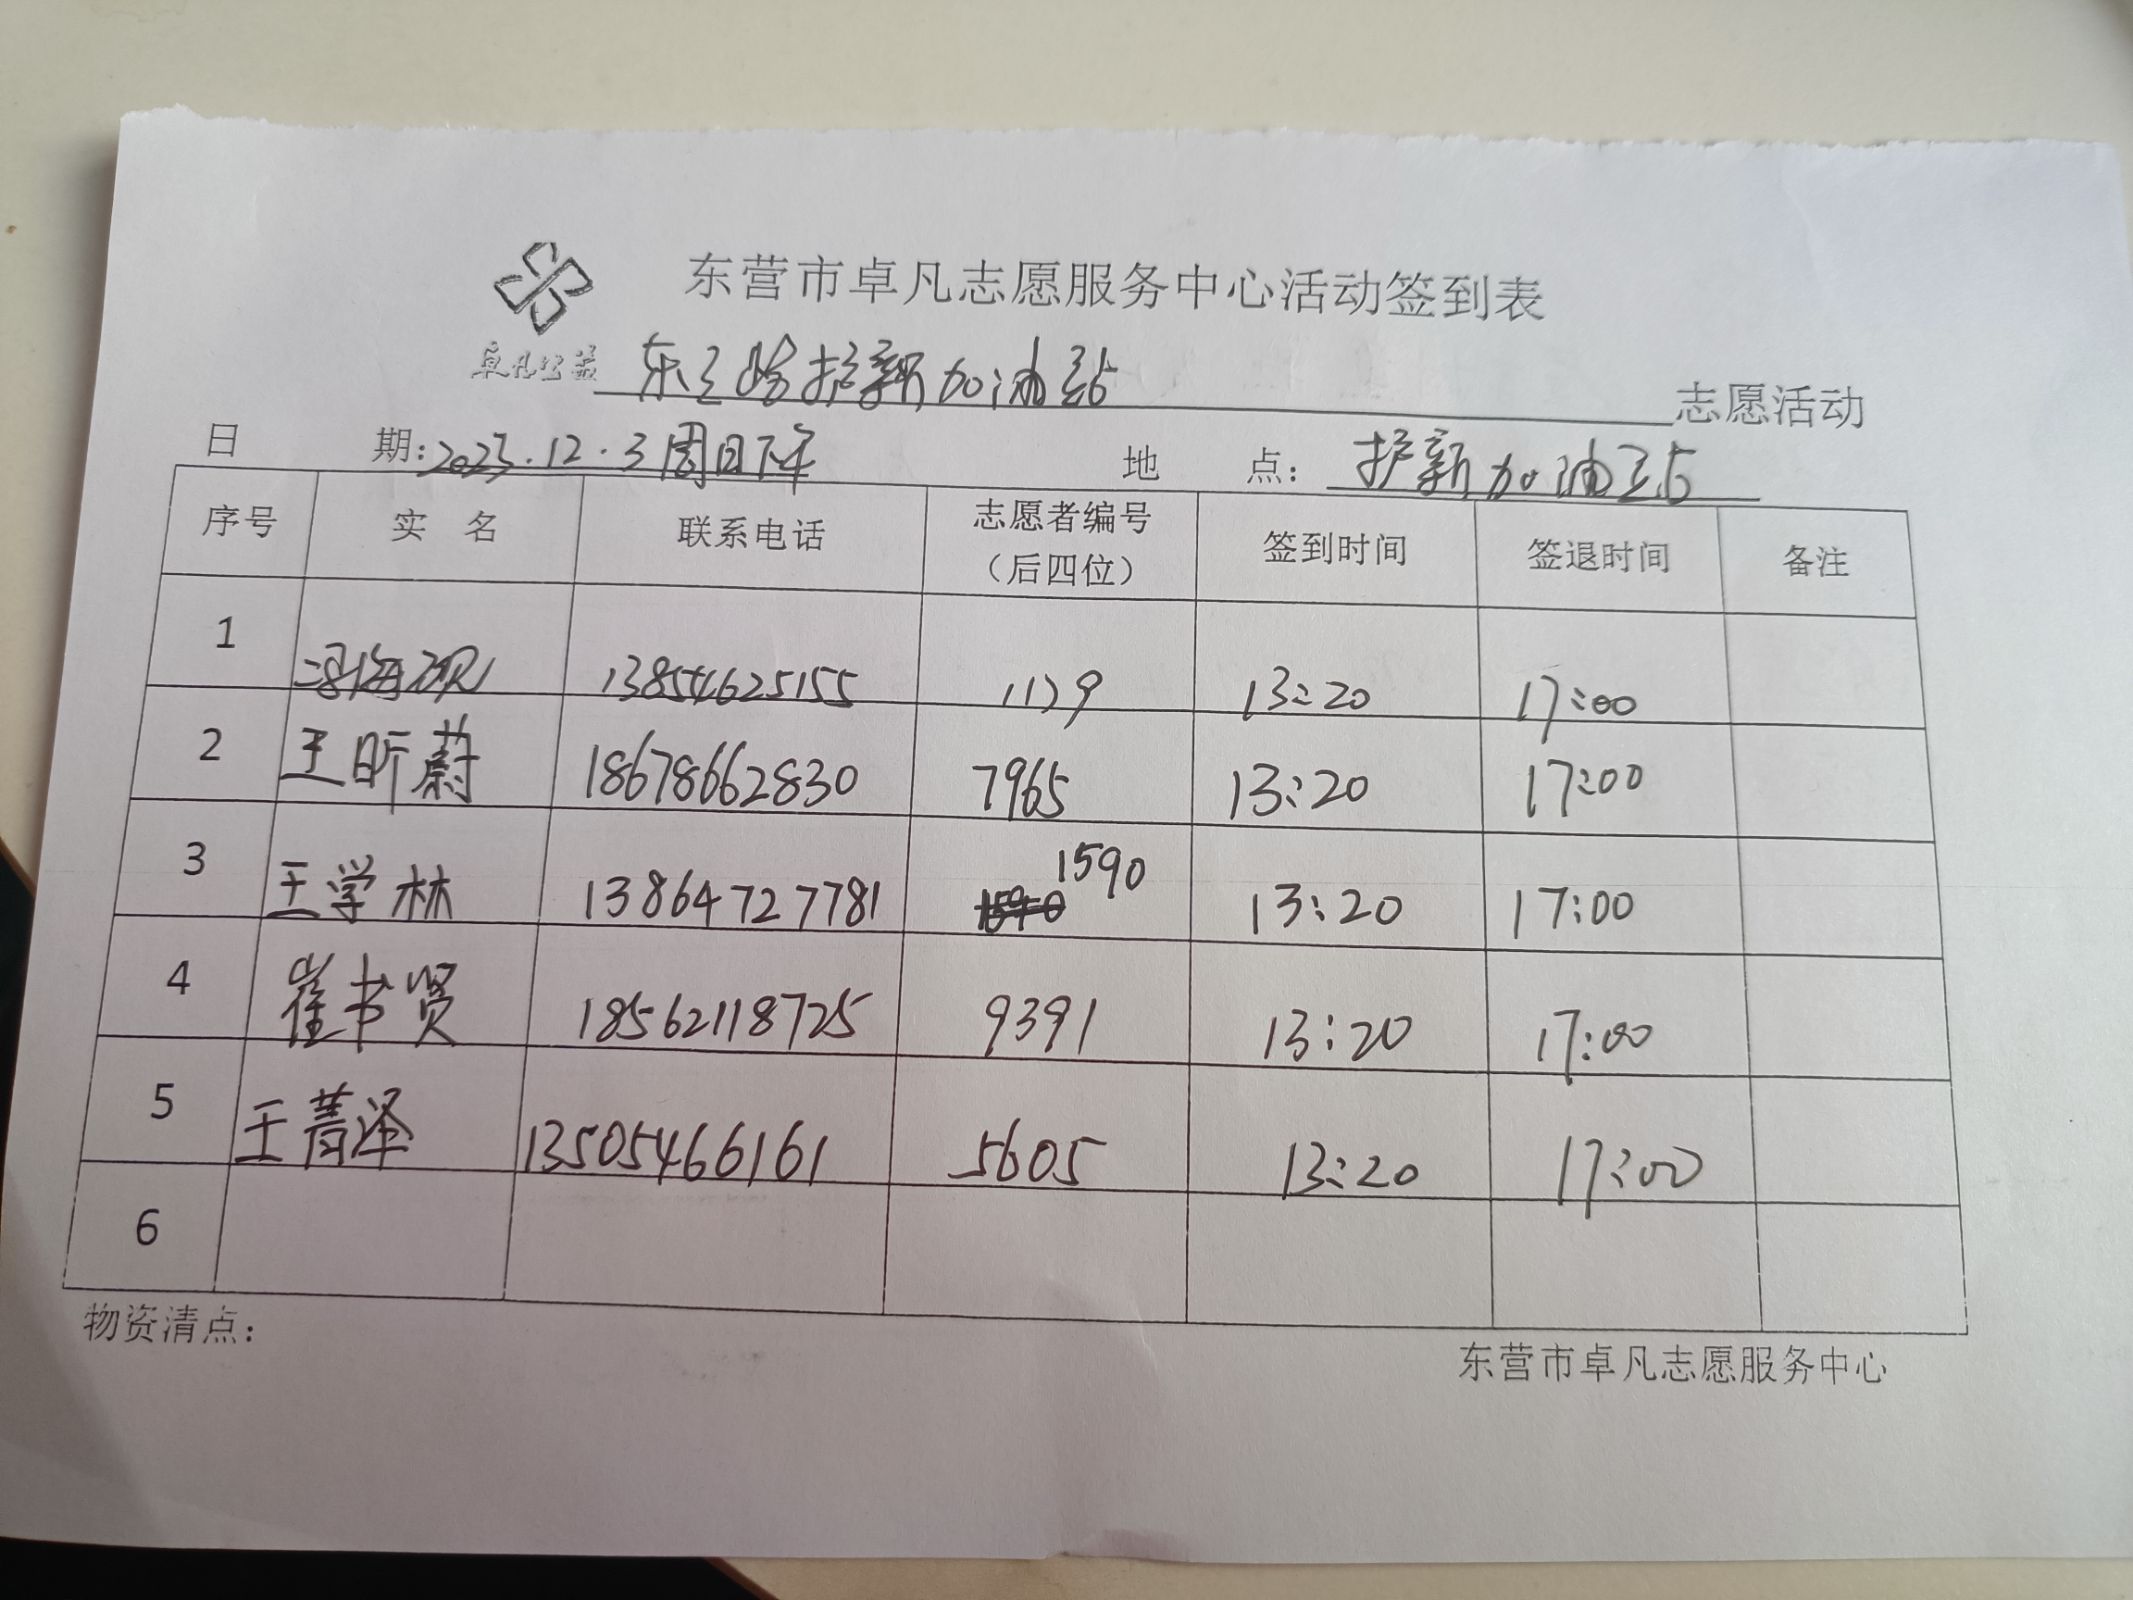 东营市卓凡志愿服务中心活动签到表
卓凡公益 东三路护新加油站 志愿活动
日 期:2023.12.3周日下午 地 点:护新加油站
序号 实 名 联系电话 志愿者编号（后四位） 签到时间 签退时间 备注
1 13854625155 1129 13:20 17:00
2 王昕蔚 18678662830 7965 13:20 17:00
3 王学林 13864727781 1590 13:20 17:00
4 崔书贤 18562118725 9391 13:20 17:00
5 王菁泽 13505466161 5605 13:20 17:00
6
物资清点:
东营市卓凡志愿服务中心